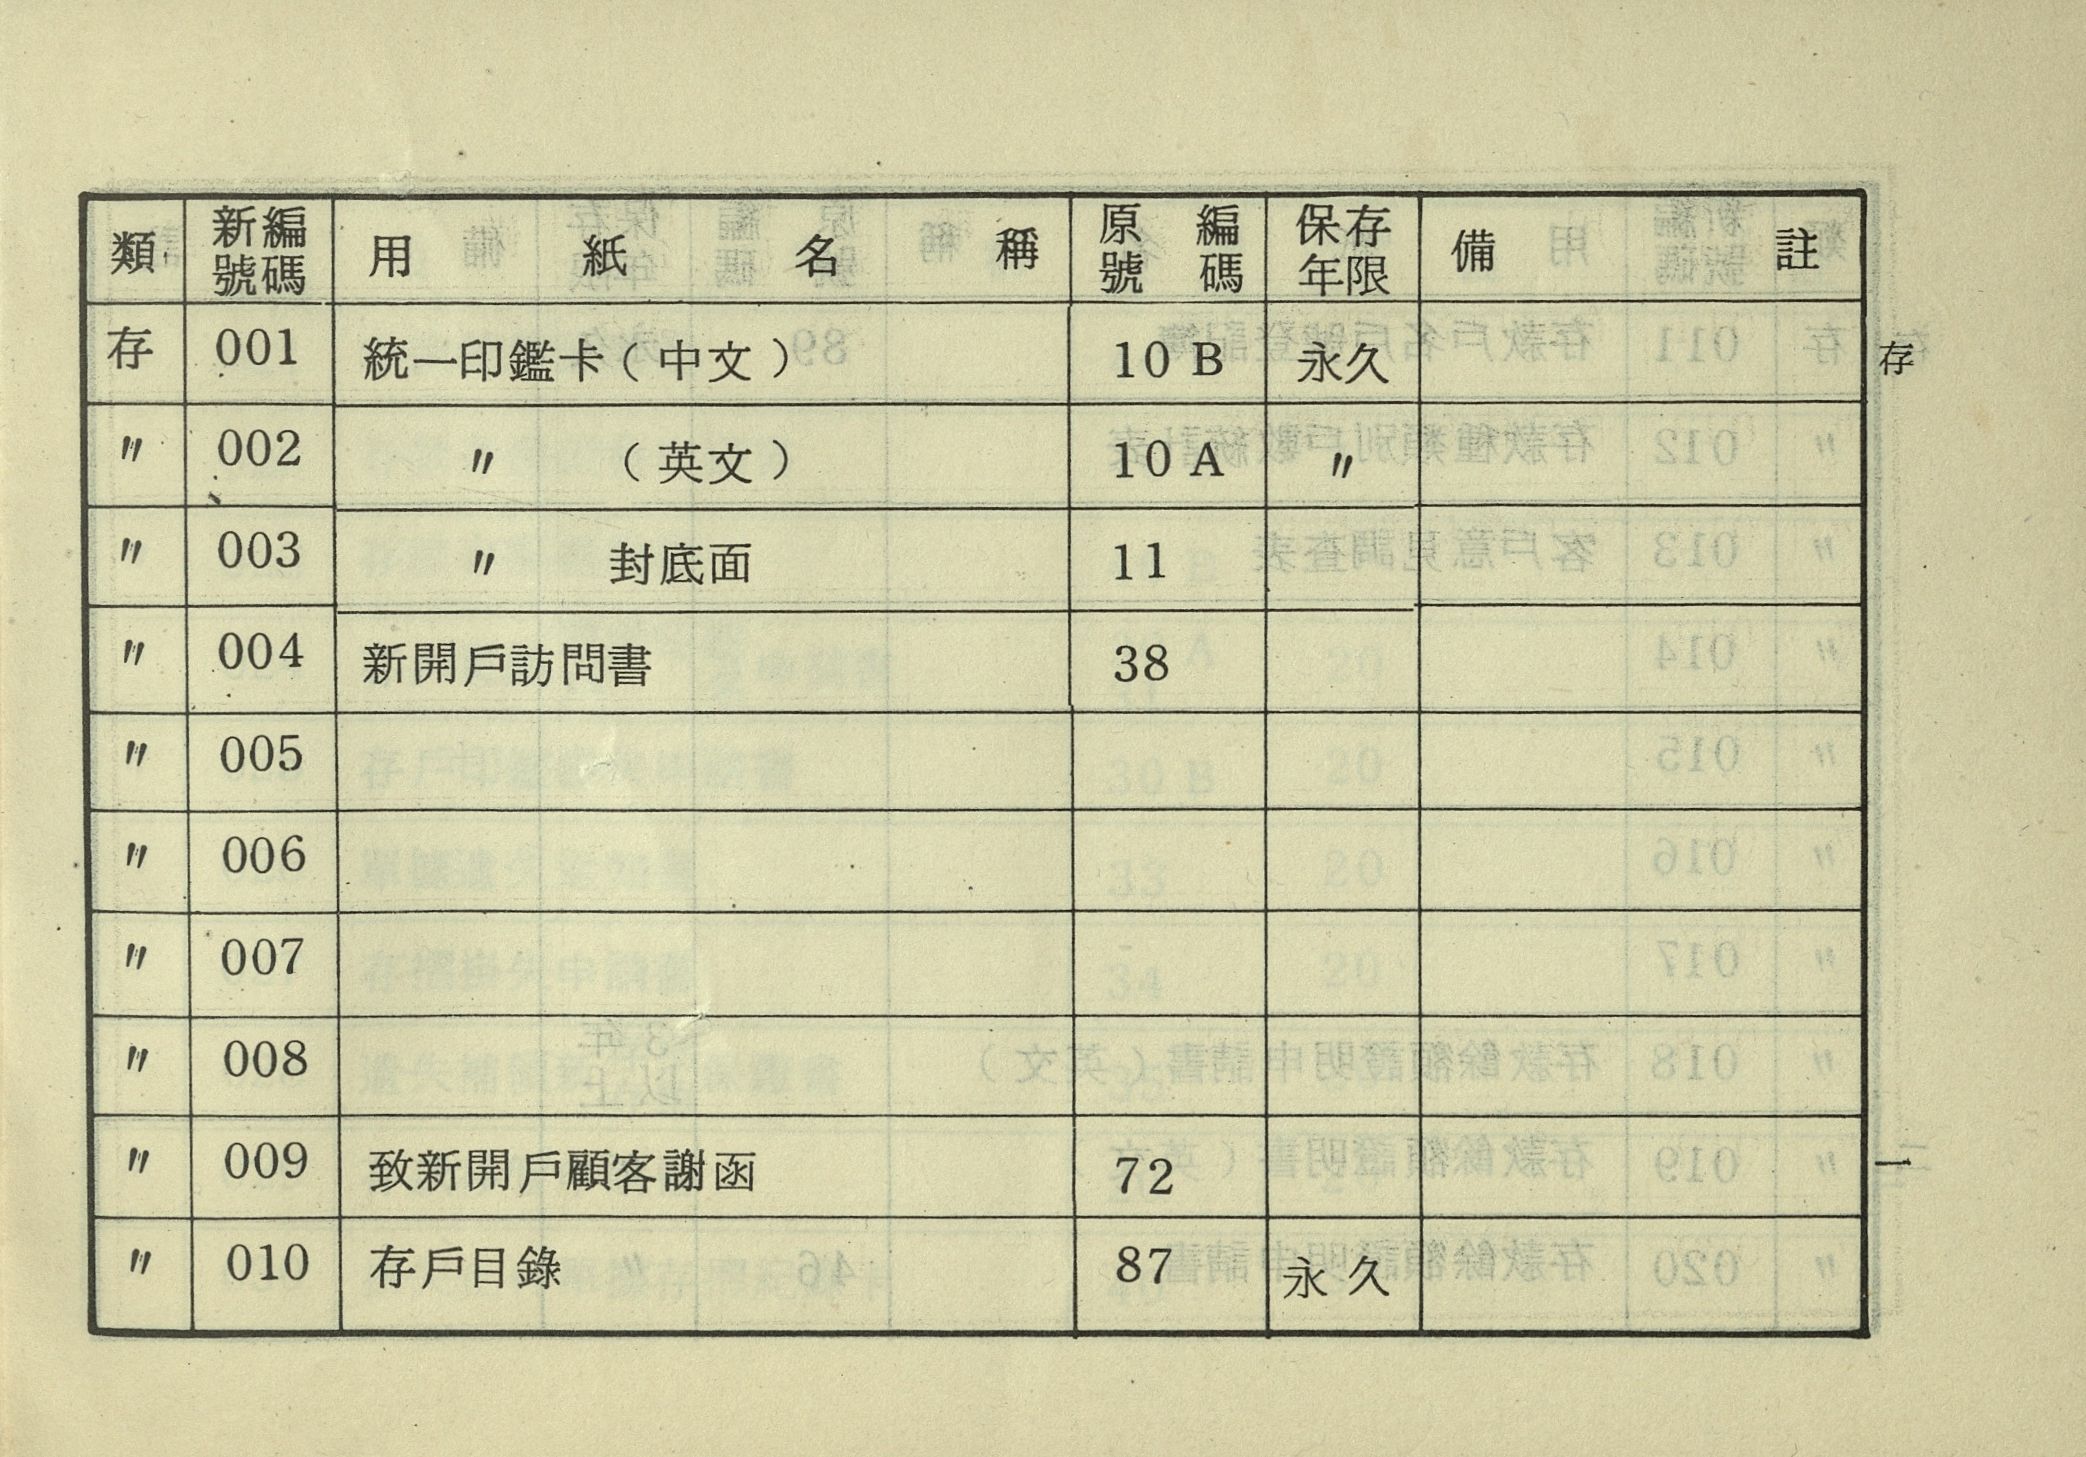 類 新編號碼 用紙名稱 原編號碼 保存年限 備註
存 001 統一印鑑卡（中文） 10 B 永久
〃 002 〃 （英文） 10 A 〃
〃 003 〃 封底面 11
〃 004 新開戶訪問書 38
〃 005
〃 006
〃 007
〃 008
〃 009 致新開戶顧客謝函 72
〃 010 存戶目錄 87 永久
存
一